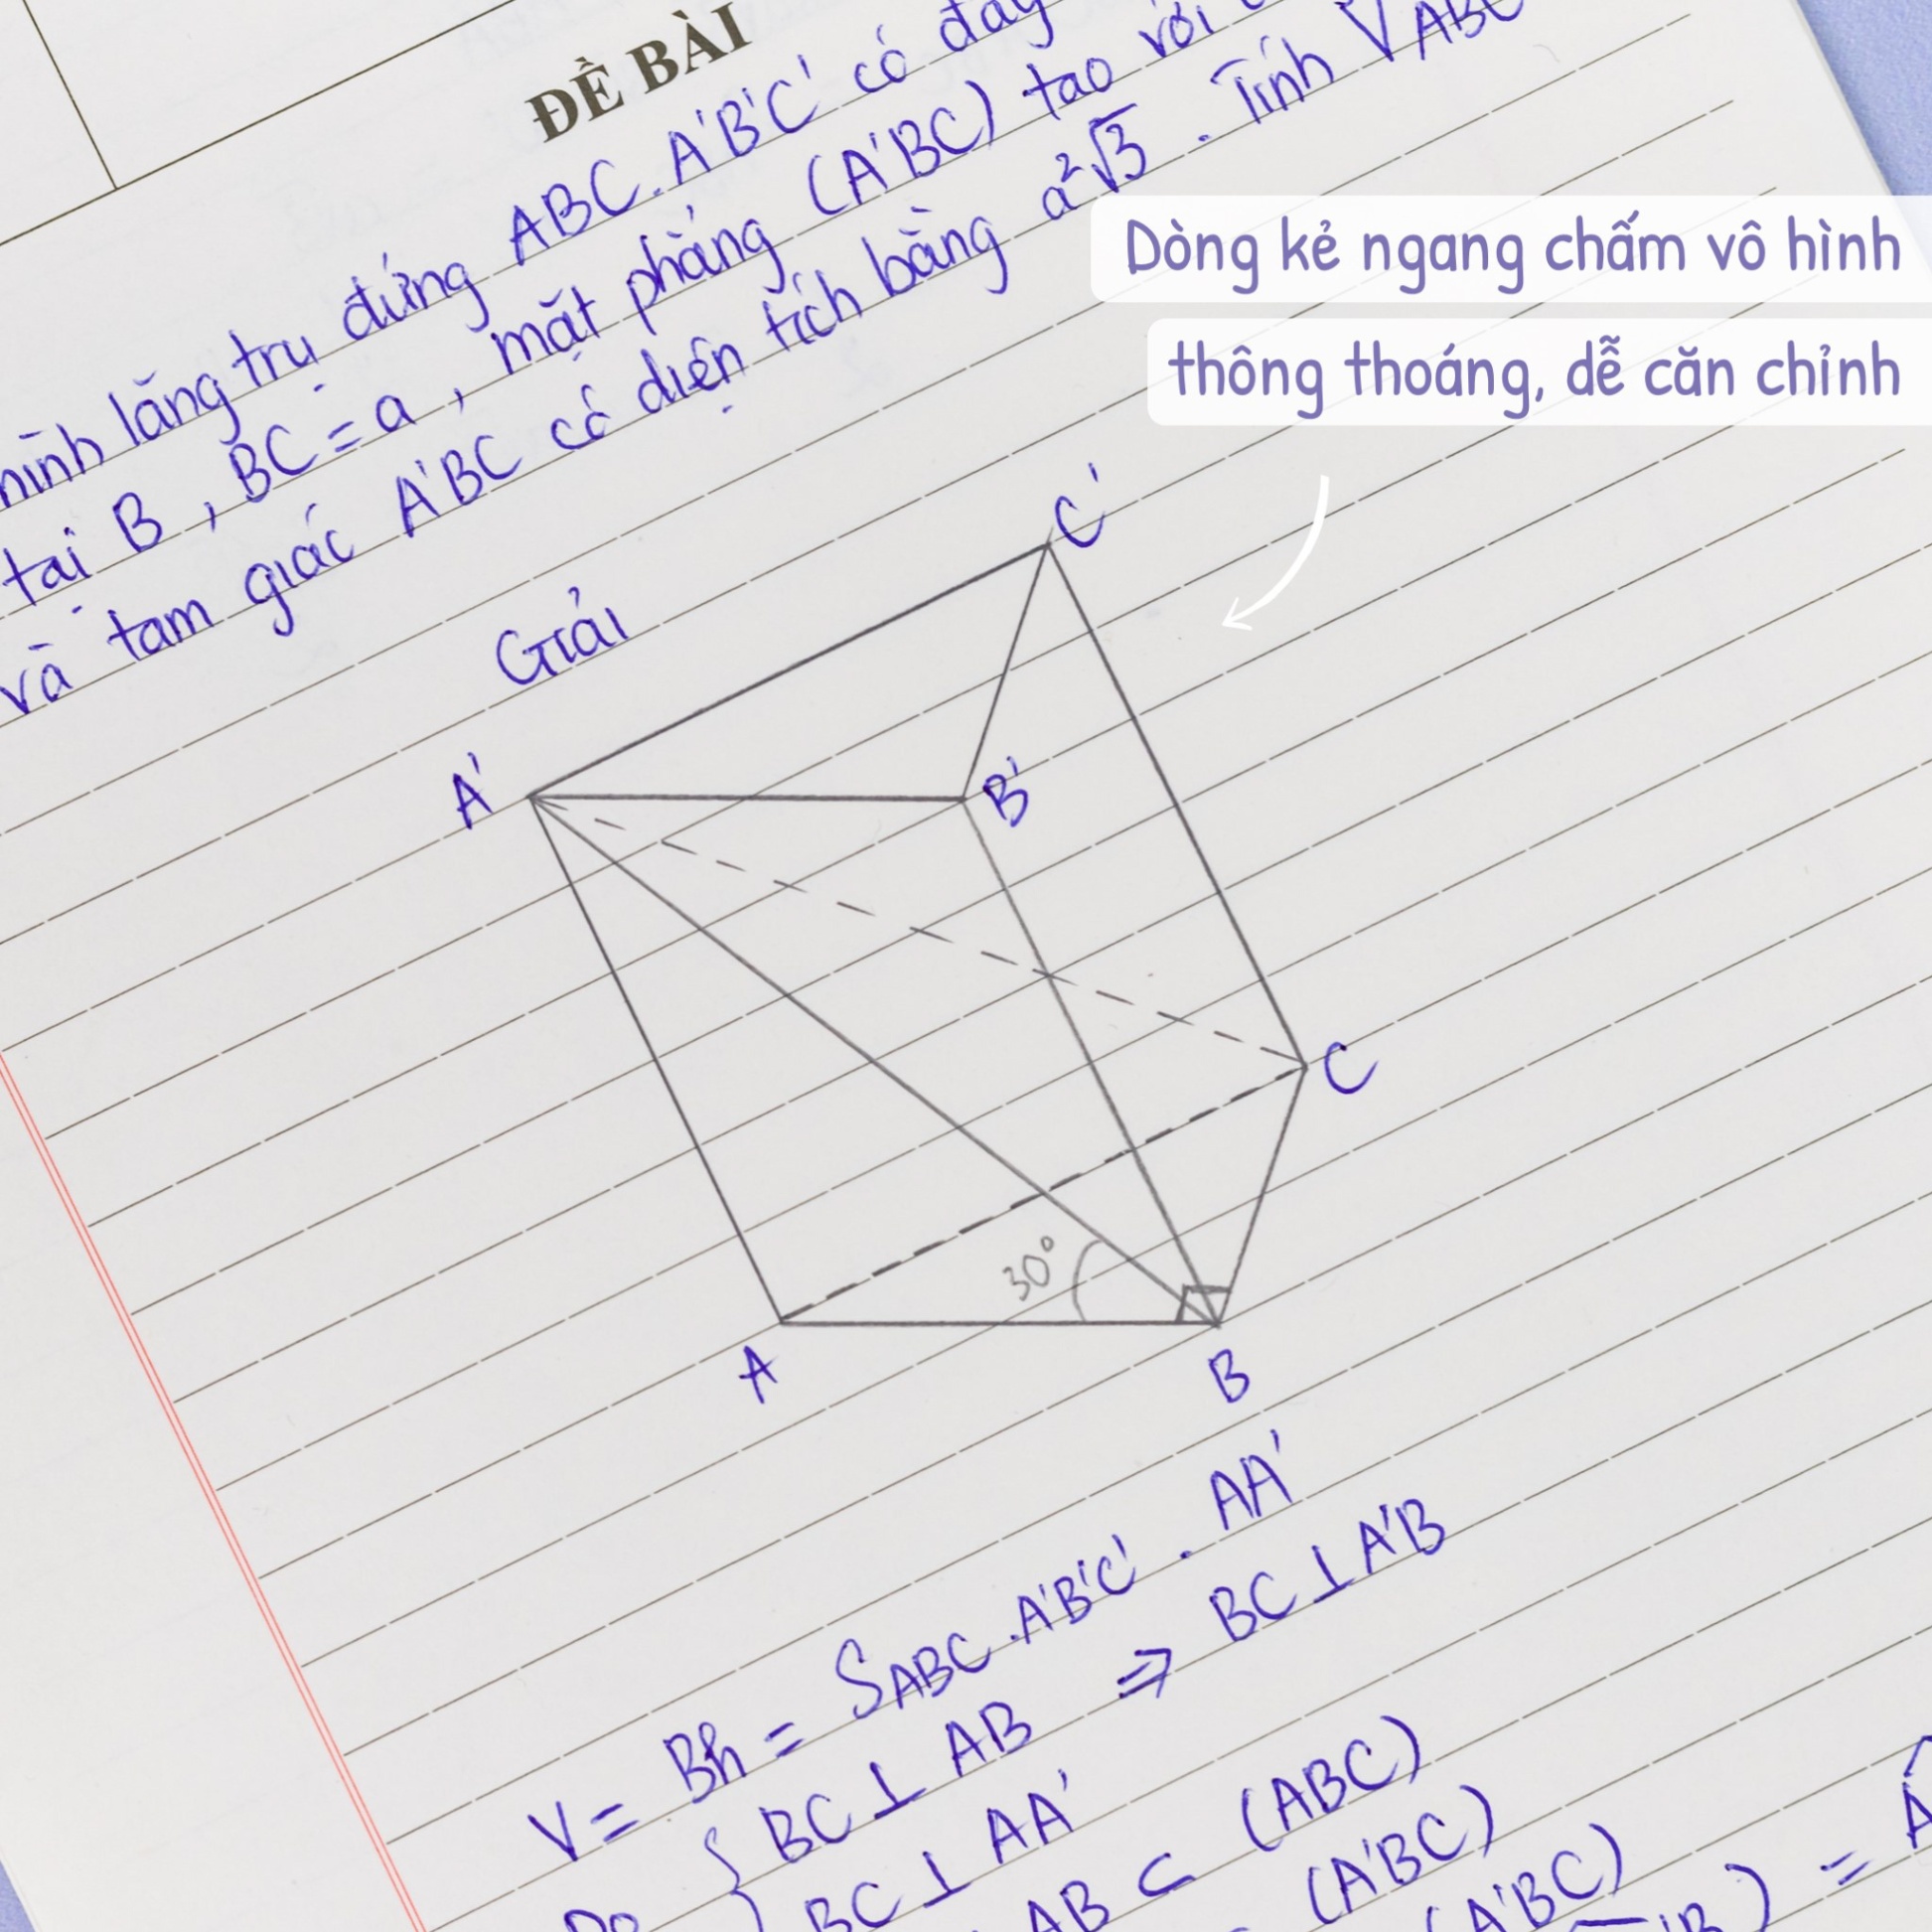 ĐỀ BÀI
hình lăng trụ đứng ABC.A'B'C' có đáy
tại B, BC = a, mặt phẳng (A'BC) tạo với
và tam giác A'BC có diện tích bằng a²√3. Tính V ABC
Dòng kẻ ngang chấm vô hình
thông thoáng, dễ căn chỉnh
Giải
C'
A'
B'
C
30°
A
B
V = Bh = S ABC.A'B'C' . AA'
{ BC ⊥ AB ⇒ BC ⊥ A'B
BC ⊥ AA'
AB ⊂ (ABC)
(A'BC)
(A'BC)
) =